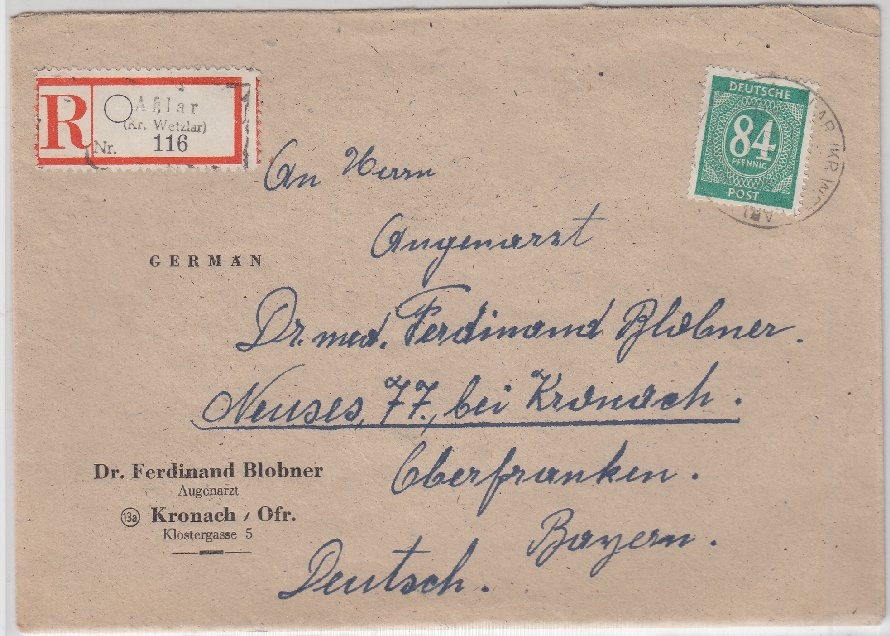 R
Aßlar
(Kr. Wetzlar)
Nr. 116
DEUTSCHE
84
PFENNIG
POST
An Herrn
Augenarzt
GERMAN
Dr. med. Ferdinand Blobner.
Neuses, 77, bei Kronach.
Oberfranken.
Bayern.
Deutsch.
Dr. Ferdinand Blobner
Augenarzt
13a Kronach / Ofr.
Klostergasse 5